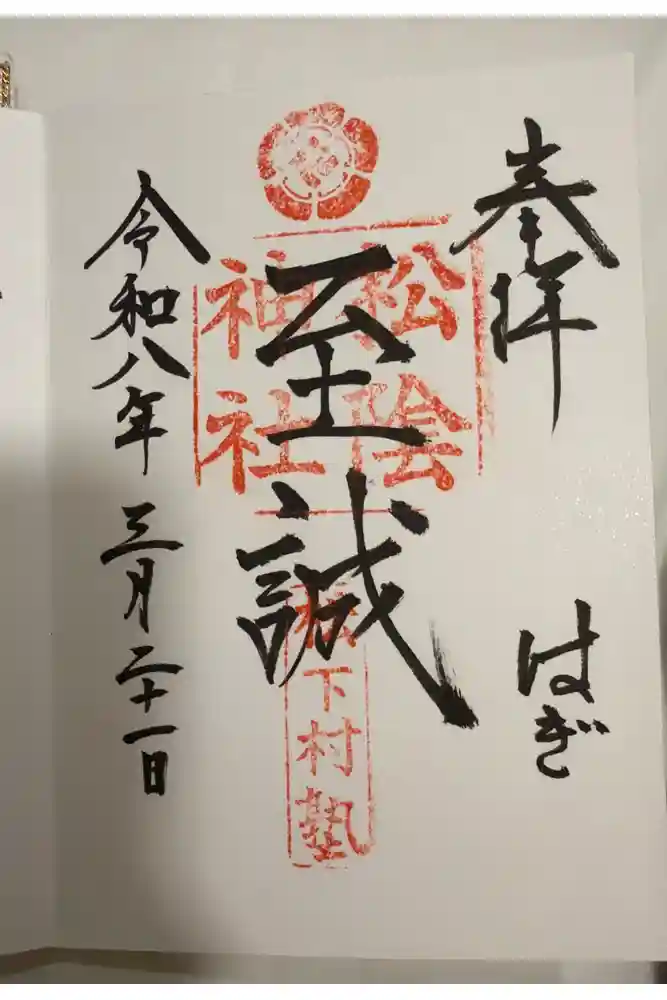 奉拝
はぎ
至誠
松陰
神社
松下村塾
令和八年三月二十一日